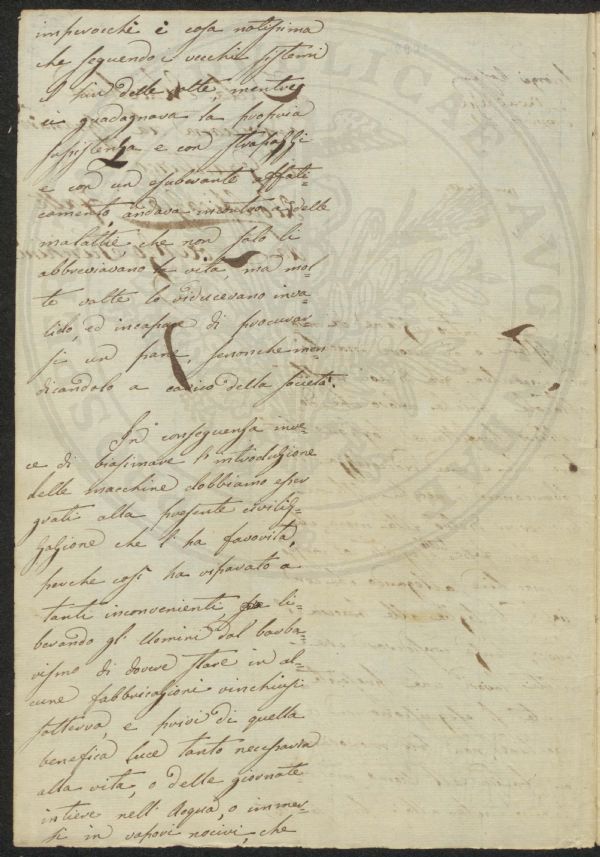 imperocchè è cosa notissima
che seguendo i vecchi sistemi
il più delle volte, mentre
si guadagnava la propria
sussistenza e con strapazzi
e con un esuberante affati-
camento, andava incontro a delle
malattie che non solo li
abbreviavano la vita, mà mol-
te volte lo riducevano inva-
lido, ed incapace di procurar-
si un pane, senonche men-
dicandolo a carico della società.
In conseguenza inve-
ce di biasimare l'introduzione
delle macchine dobbiamo esser
grati alla presente civiliz-
zazione che l'ha favorita,
perche così ha riparato a
tanti inconvenienti li-
berando gl'Uomini dal barba-
rismo di dovere stare in al-
cune fabbricazioni rinchiusi
sotterra, e privi di quella
benefica luce tanto necessaria
alla vita, o delle giornate
intiere nell'Acqua, o immer-
si in vapori nocivi, che